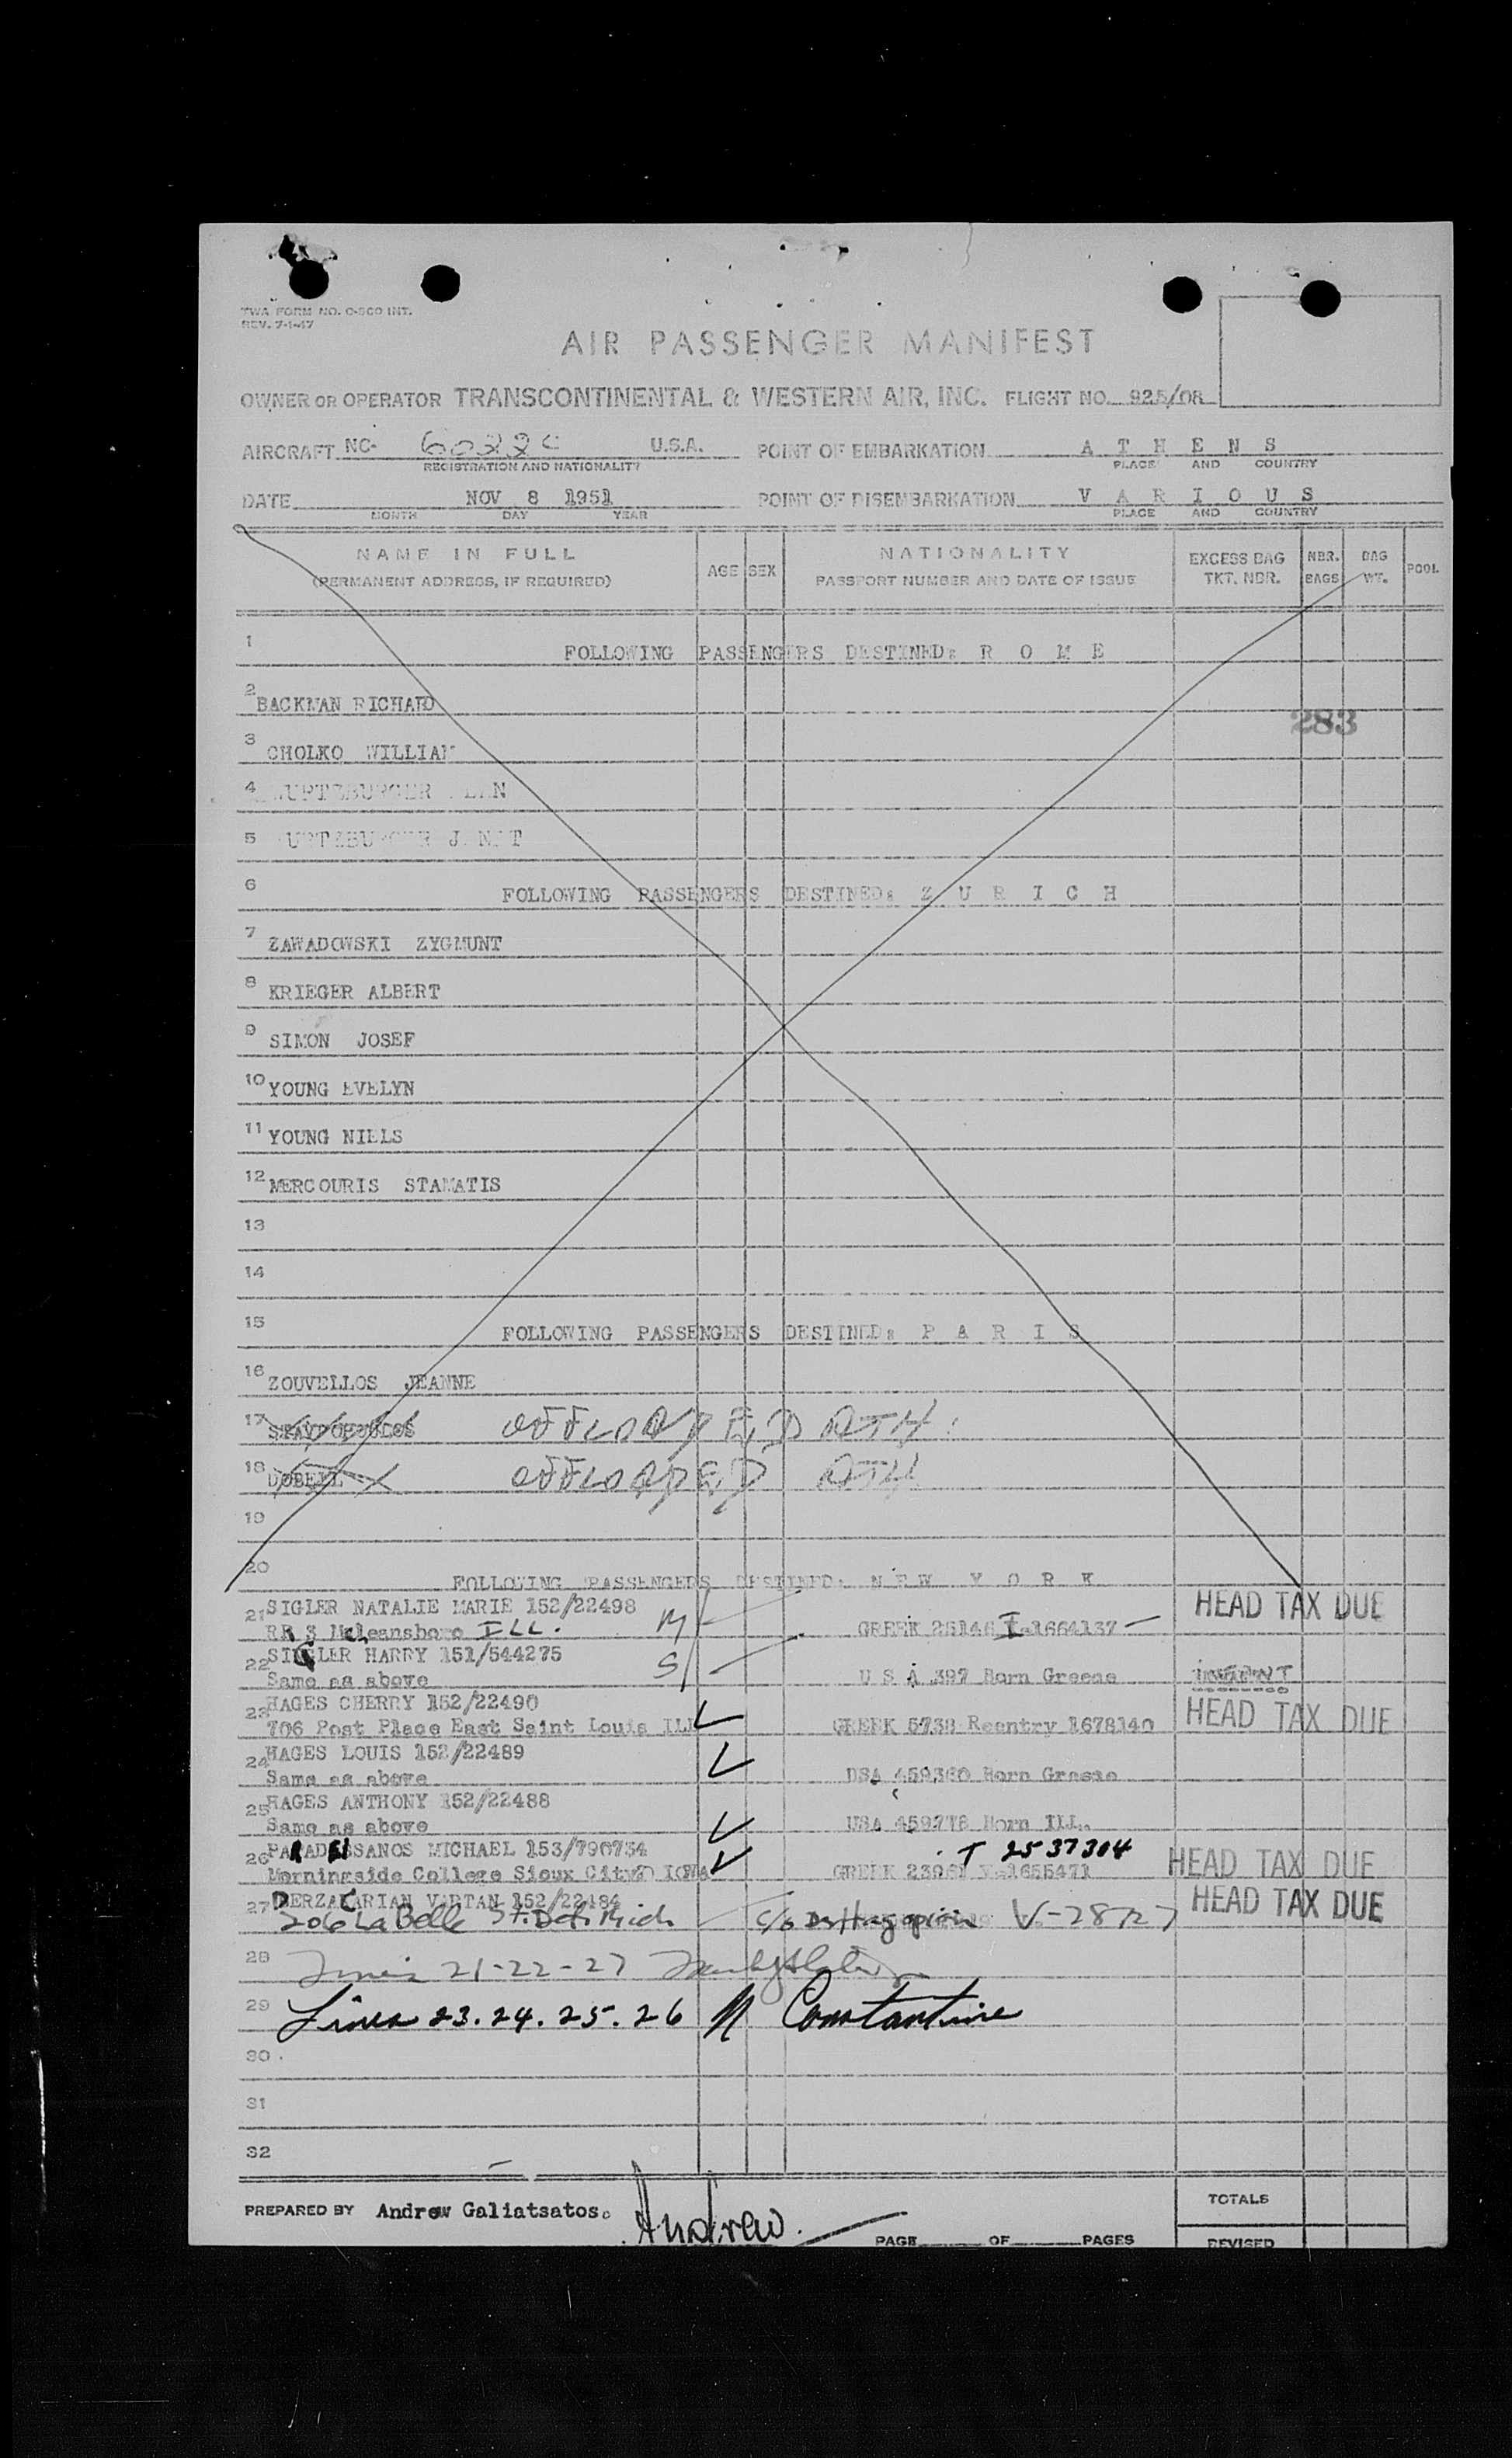 TWA FORM NO. O-500 INT.
REV. 7-1-47
AIR PASSENGER MANIFEST
OWNER OR OPERATOR TRANSCONTINENTAL & WESTERN AIR, INC. FLIGHT NO. 925/08
AIRCRAFT NC- 6022C U.S.A. POINT OF EMBARKATION A T H E N S
REGISTRATION AND NATIONALITY PLACE AND COUNTRY
DATE NOV 8 1951 POINT OF DISEMBARKATION V A R I O U S
MONTH DAY YEAR PLACE AND COUNTRY
NAME IN FULL AGE SEX NATIONALITY EXCESS BAG NBR. BAG POOL
(PERMANENT ADDRESS, IF REQUIRED) PASSPORT NUMBER AND DATE OF ISSUE TKT. NBR. BAGS WT.
1 FOLLOWING PASSENGERS DESTINED: R O M E
2 BACKMAN RICHARD
283
3 CHOLKO WILLIAM
4
5
6 FOLLOWING PASSENGERS DESTINED: Z U R I C H
7 ZAWADOWSKI ZYGMUNT
8 KRIEGER ALBERT
9 SIMON JOSEF
10 YOUNG EVELYN
11 YOUNG NIELS
12 MERCOURIS STAMATIS
13
14
15 FOLLOWING PASSENGERS DESTINED: P A R I S
16 ZOUVELLOS JEANNE
17 OFFLOADED ATH.
18 OFFLOADED ATH
19
20 FOLLOWING PASSENGERS DESTINED: N E W Y O R K
21 SIGLER NATALIE MARIE 152/22498 HEAD TAX DUE
RR 3 McLeansboro ILL. M GREEK 25146 I-1664137
22 SIGLER HARRY 151/544275 S
Same as above U S A 397 Born Greece INFANT
23 HAGES CHERRY 152/22490 HEAD TAX DUE
706 Post Place East Saint Louis ILL GREEK 5738 Reentry 1678140
24 HAGES LOUIS 152/22489
Same as above USA 459360 Born Greece
25 HAGES ANTHONY 152/22488
Same as above USA 459778 Born ILL.
26 MICHAEL 153/790734 T 2537304 HEAD TAX DUE
Morningside College Sioux City IOWA GREEK 1655471
27 DERZACARIAN VARTAN 152/22484 HEAD TAX DUE
206 LaBelle St. Det. Mich c/o Dr Hagopian
28 21-22-27
29 Lines 23. 24. 25. 26 N Constantine
30
31
32
PREPARED BY Andrew Galiatsatos. Andrew. TOTALS
PAGE OF PAGES REVISED